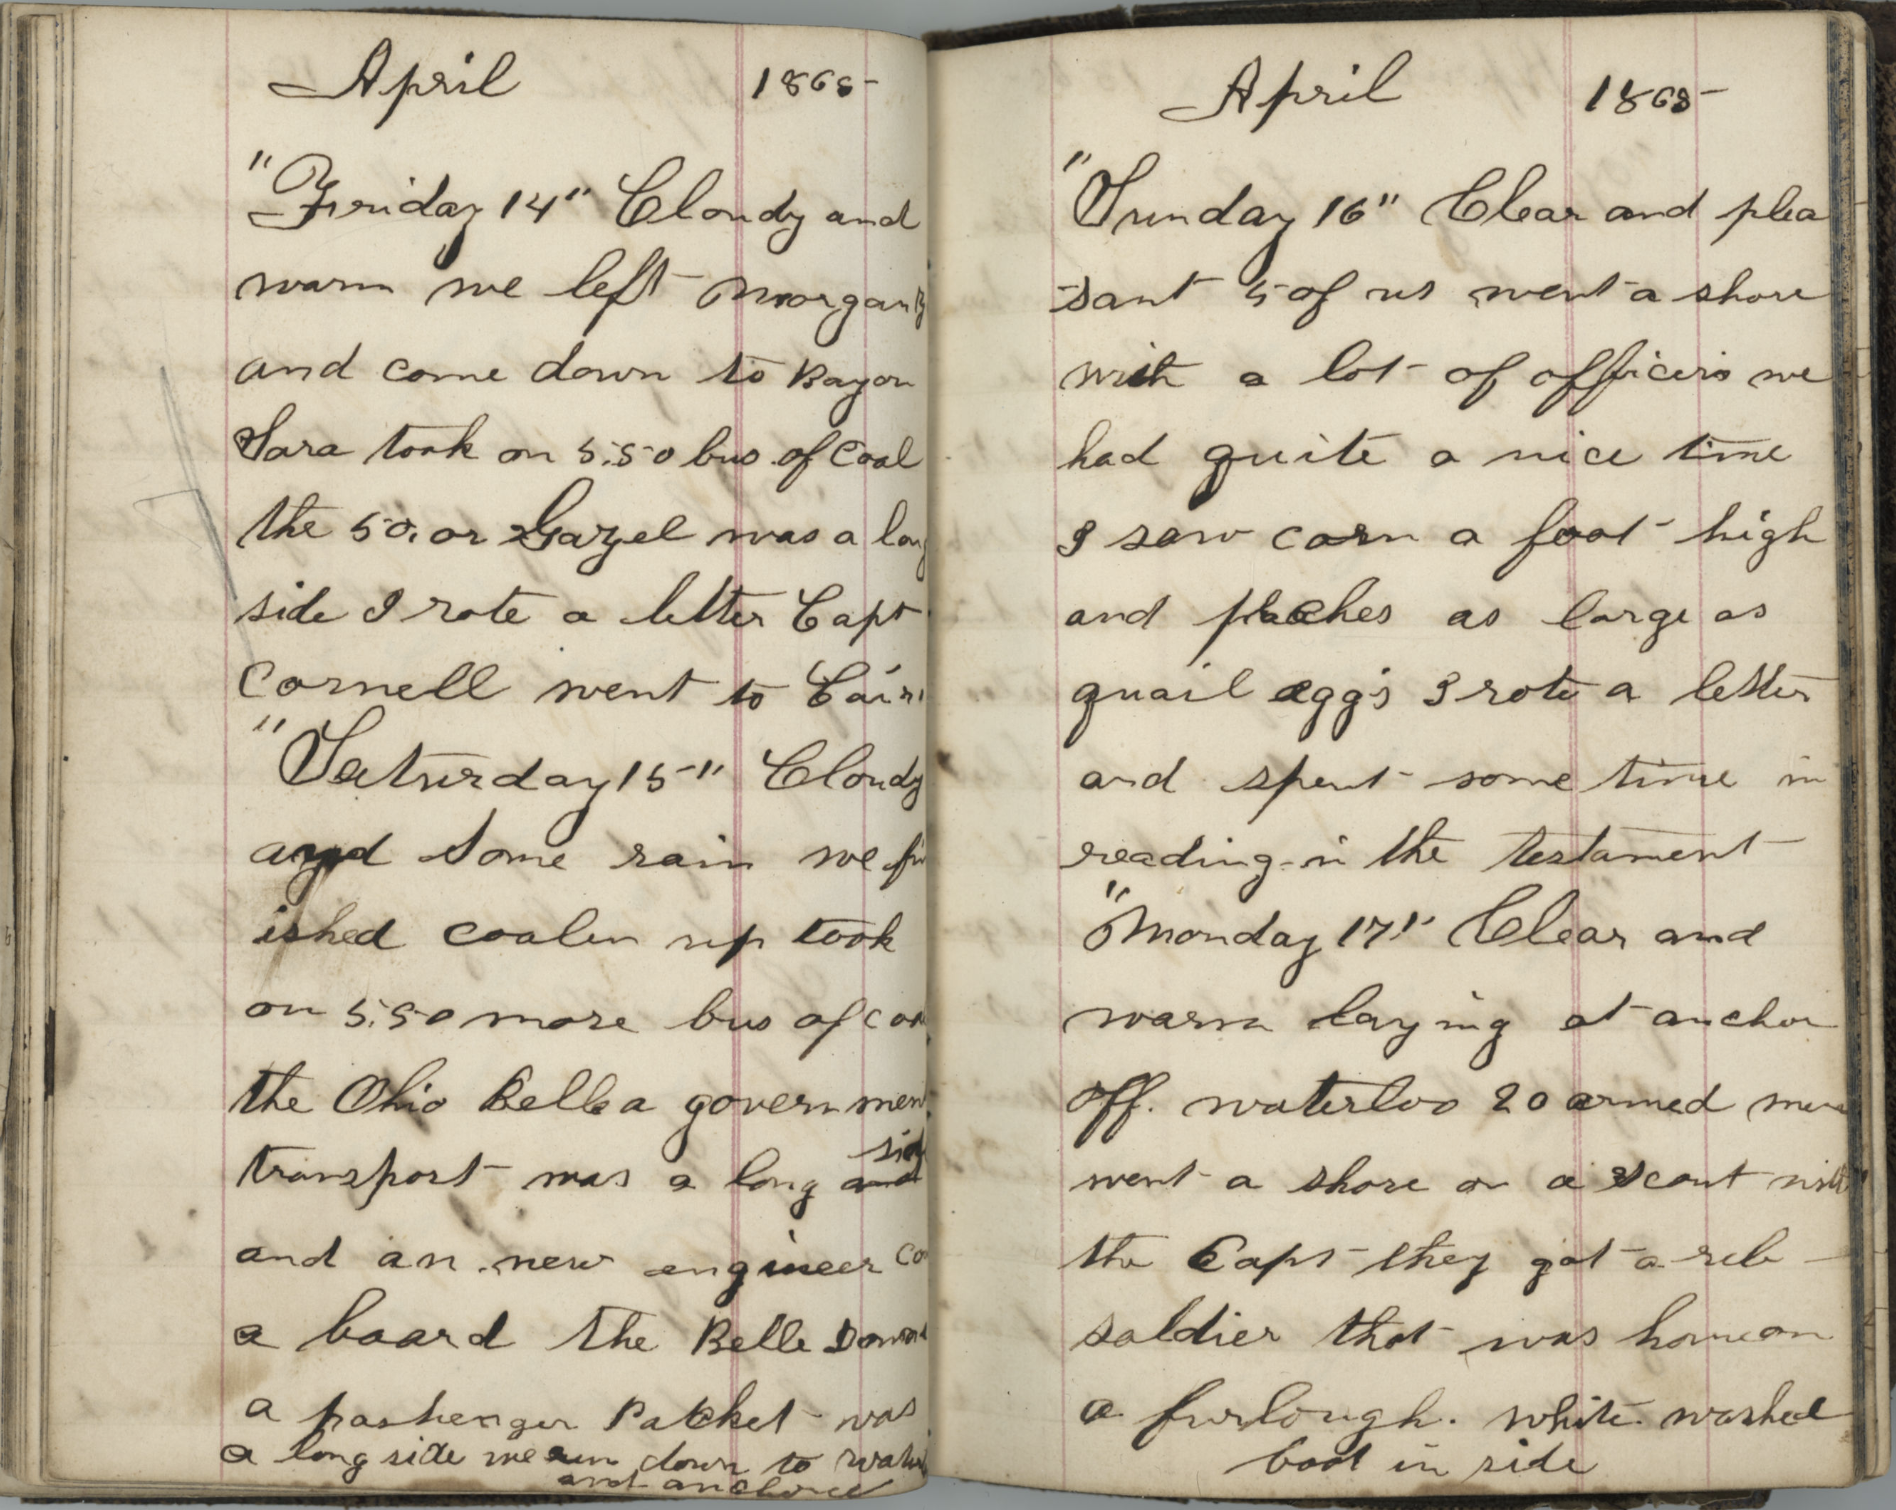 April 1865
"Friday 14" Cloudy and
warm we left Morganz
and come down to Bayou
Sara took on 5.50 bus of Coal
the 50. or Gazel was a long
side I rote a letter Capt
Cornell went to Cairo
"Saturday 15" Cloudy
and some rain we fin
ished coalen up took
on 5.50 more bus of coal
the Ohio Belle a government
transport was a long side
and an new engineer
a board the Belle
a passhenger Packet was
a long side we run down to
and anchored
April 1865
"Sunday 16" Clear and plea
-sant 5 of us went a shore
with a lot of officers we
had quite a nice time
I saw corn a foot high
and peaches as large as
quail eggs I rote a letter
and spent some time in
reading in the testament
"Monday 17" Clear and
warm laying at anchor
off. waterloo 20 armed men
went a shore on a scout with
the Capt they got a reb
soldier that was home on
a furlough. white washed
boat in side